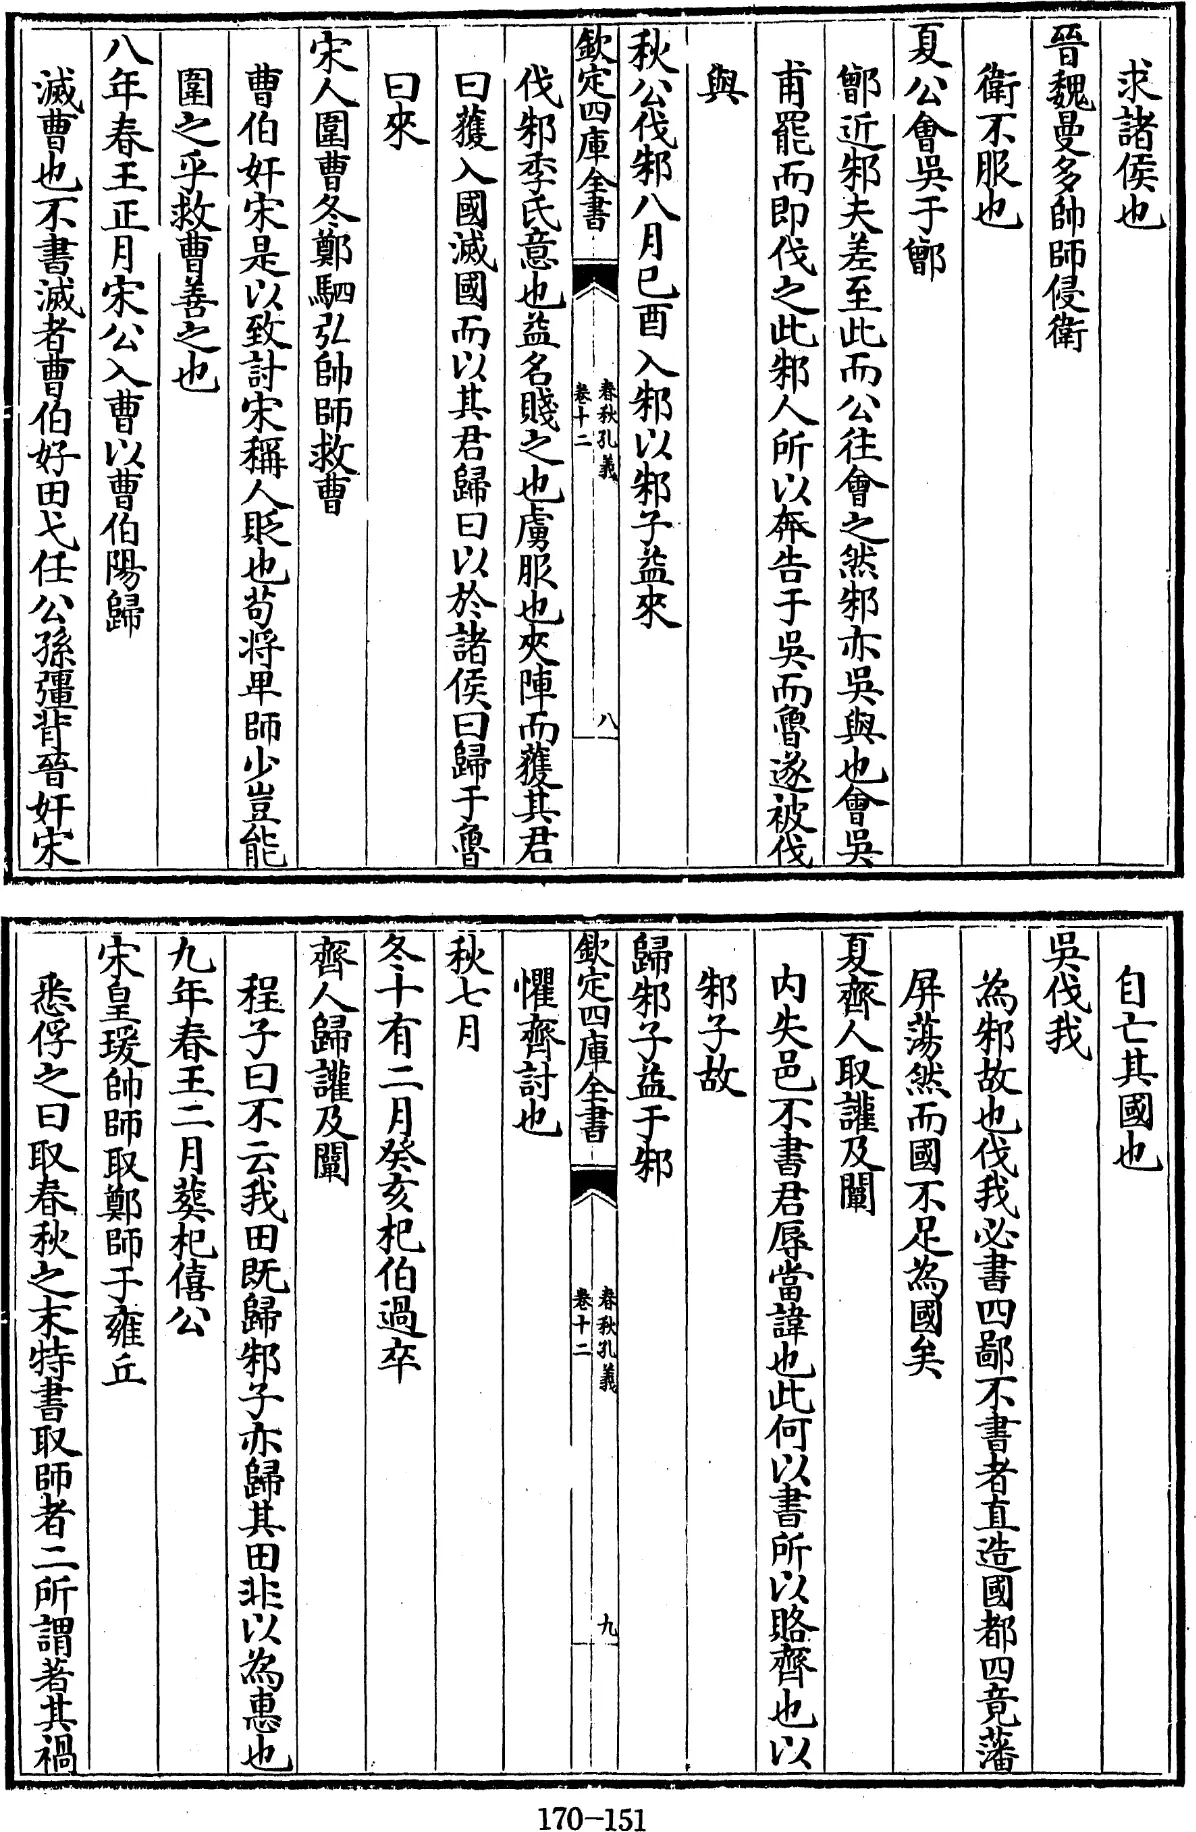 求諸侯也
晉魏曼多帥師侵衛
衛不服也
夏公會吳于鄫
鄫近邾夫差至此而公往會之然邾亦吳與也會吳
甫罷而即伐之此邾人所以奔告于吳而魯遂被伐
與
秋公伐邾八月已酉入邾以邾子益來
欽定四庫全書
春秋孔義
卷十二
八
伐邾季氏意也益名賤之也虜服也夾陣而獲其君
曰獲入國滅國而以其君歸曰以於諸侯曰歸于魯
曰來
宋人圍曹冬鄭駟弘帥師救曹
曹伯奸宋是以致討宋稱人貶也苟將卑師少豈能
圍之乎救曹善之也
八年春王正月宋公入曹以曹伯陽歸
滅曹也不書滅者曹伯好田弋任公孫彊背晉奸宋
自亡其國也
吳伐我
為邾故也伐我必書四鄙不書者直造國都四竟藩
屏蕩然而國不足為國矣
夏齊人取讙及闡
内失邑不書君辱當諱也此何以書所以賂齊也以
邾子故
歸邾子益于邾
欽定四庫全書
春秋孔義
卷十二
九
懼齊討也
秋七月
冬十有二月癸亥杞伯過卒
齊人歸讙及闡
程子曰不云我田既歸邾子亦歸其田非以為惠也
九年春王二月葬杞僖公
宋皇瑗帥師取鄭師于雍丘
悉俘之曰取春秋之末特書取師者二所謂著其禍
170-151